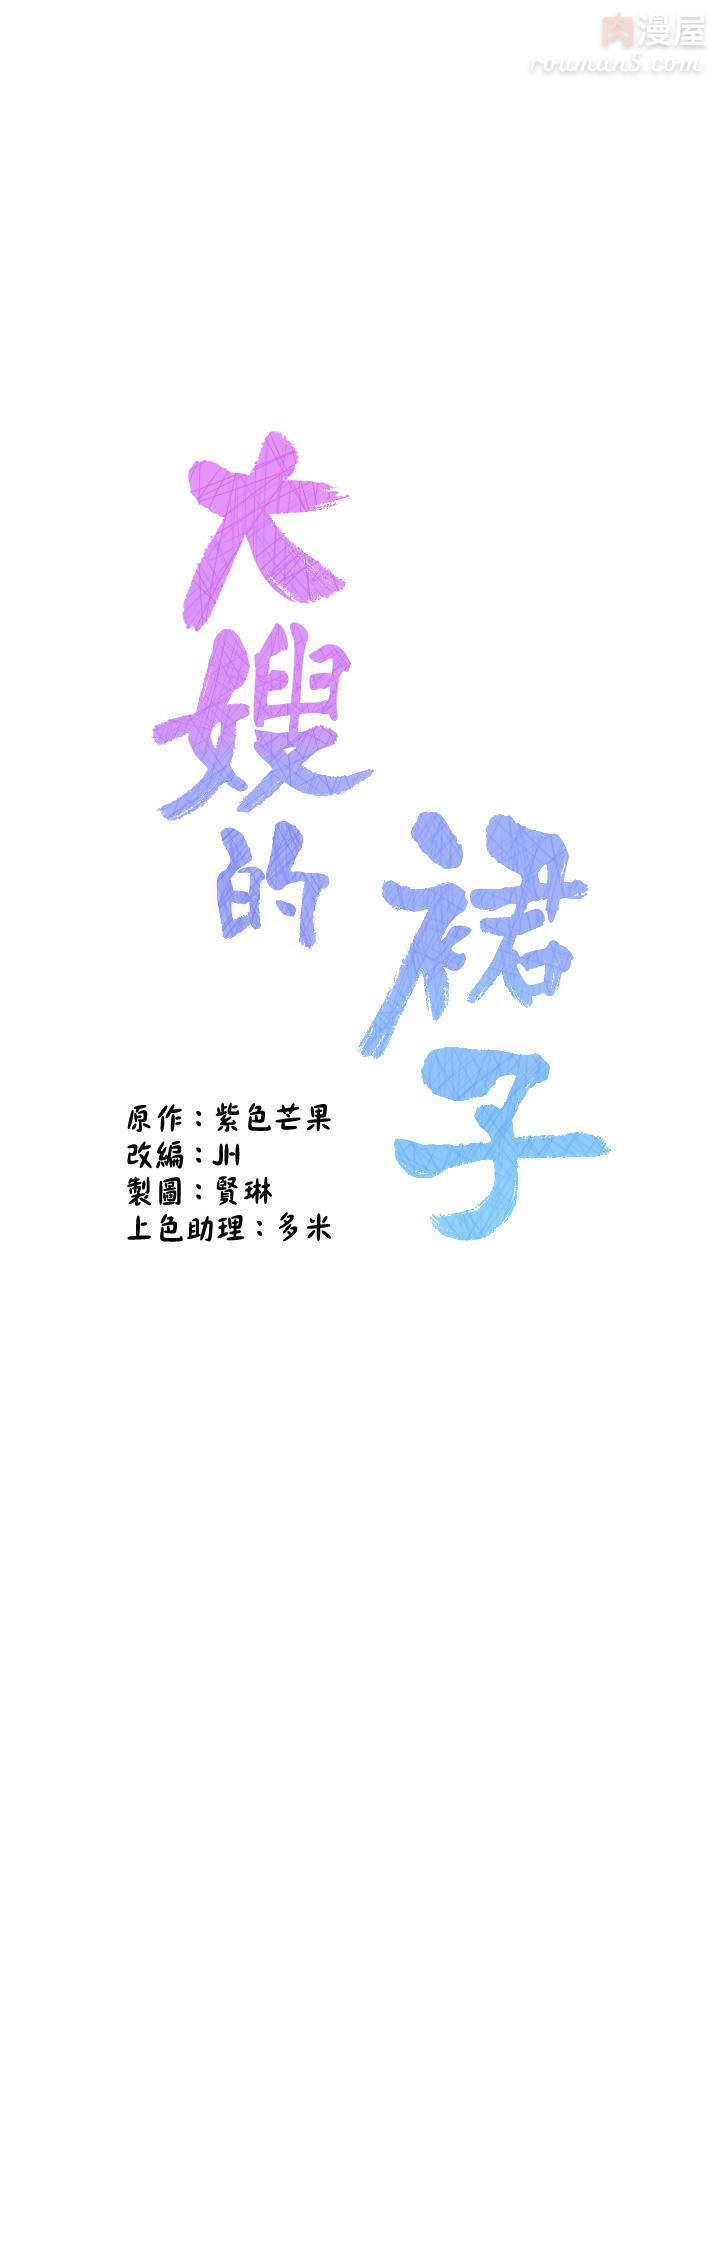 肉漫屋
rouman5.com
大嫂的
裙子
原作：紫色芒果
改編：JH
製圖：賢琳
上色助理：多米